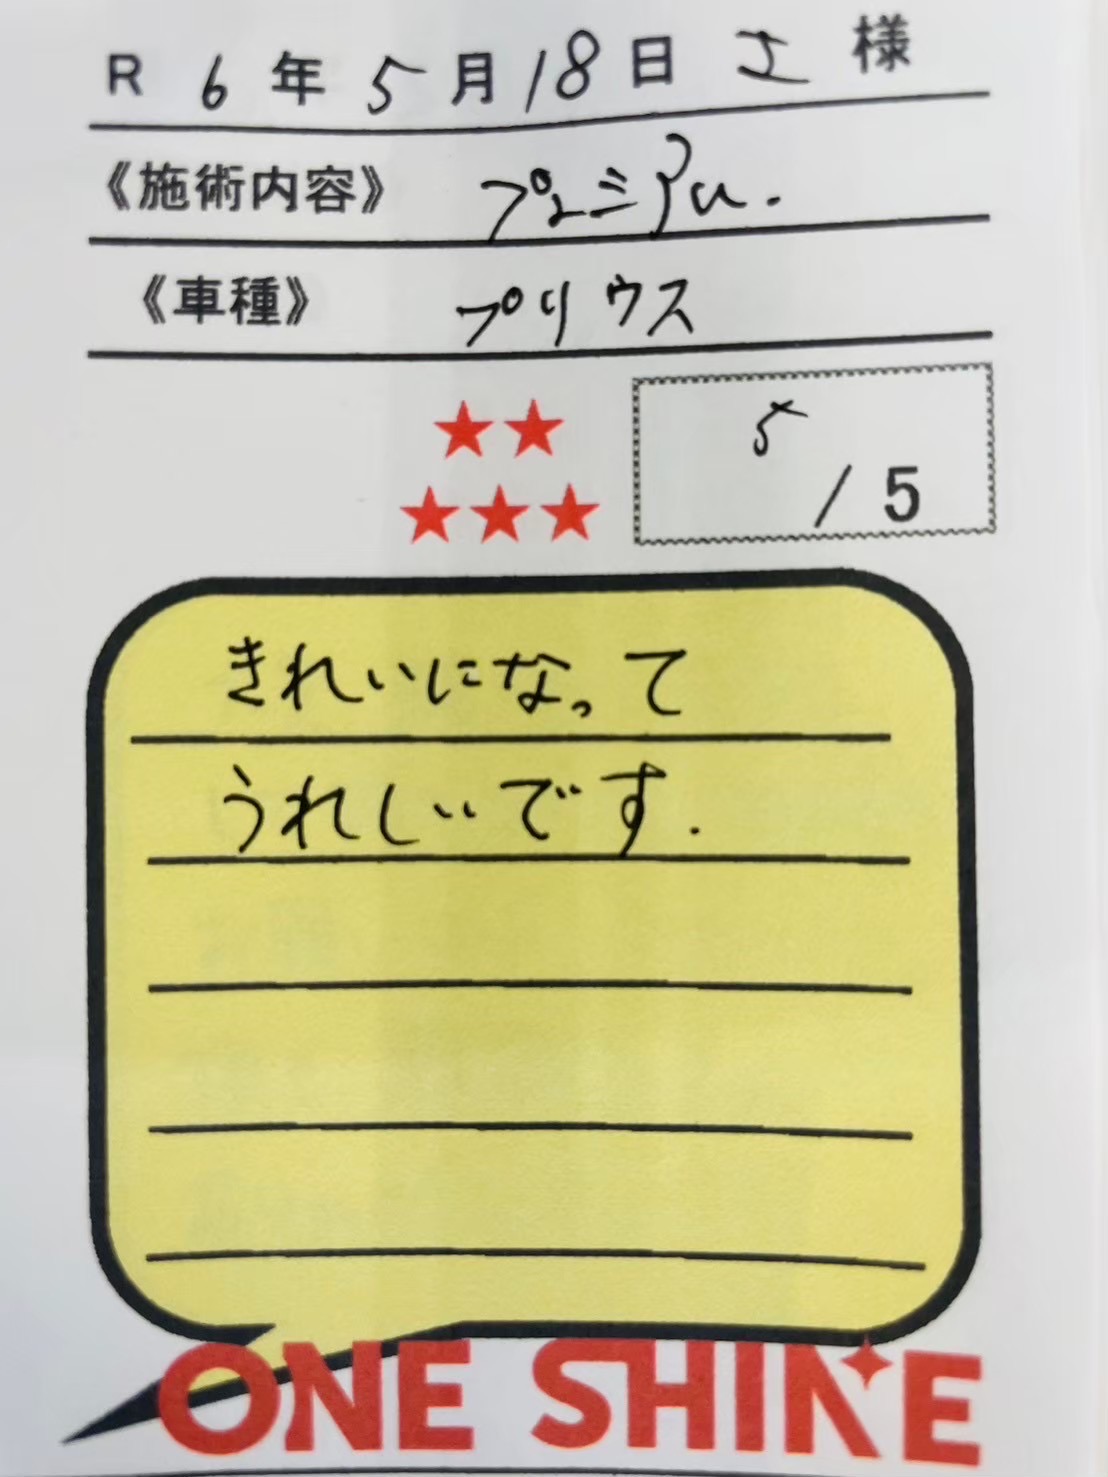 R 6 年 5 月 18 日 様
《施術内容》 プレミアム.
《車種》 プリウス
★★
★★★
5 / 5
きれいになって
うれしいです.
ONE SHINE